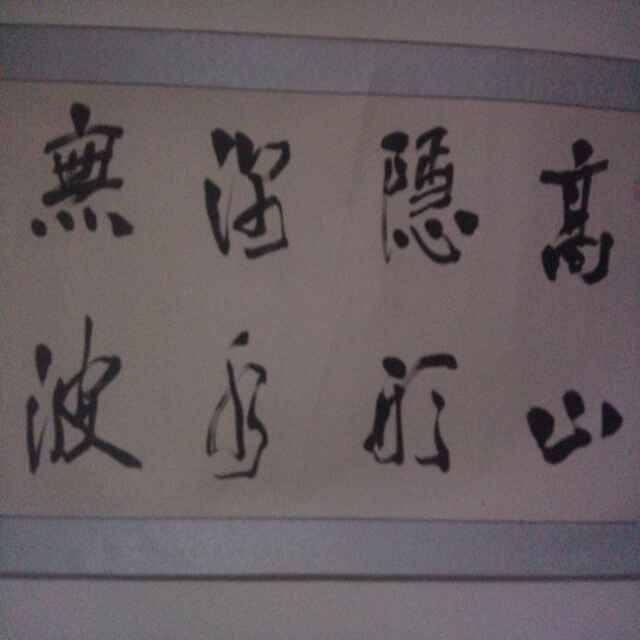 高山
隱形
深水
無波